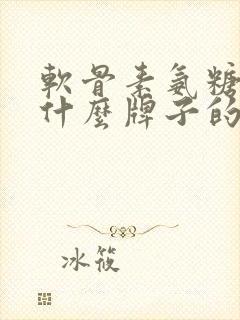 軟骨素氨糖
什麼牌子的
冰筱